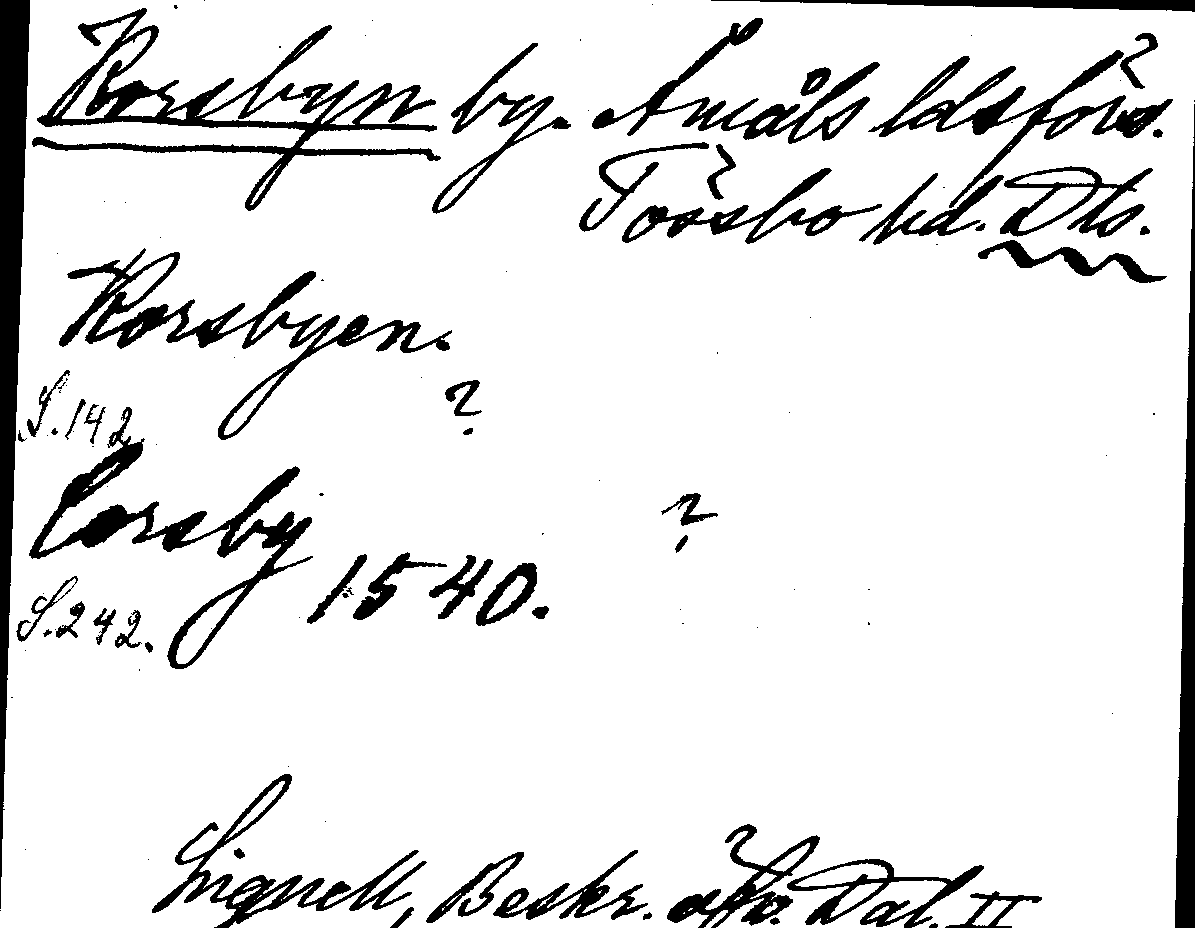 Korsbyn by. Åmåls ldsförs.
Tössbo hd. Dls.
Korsbyen.
S. 142 ?
Corsby ?
1540.
S. 242.
Lignell, Beskr. öfv. Dal. II